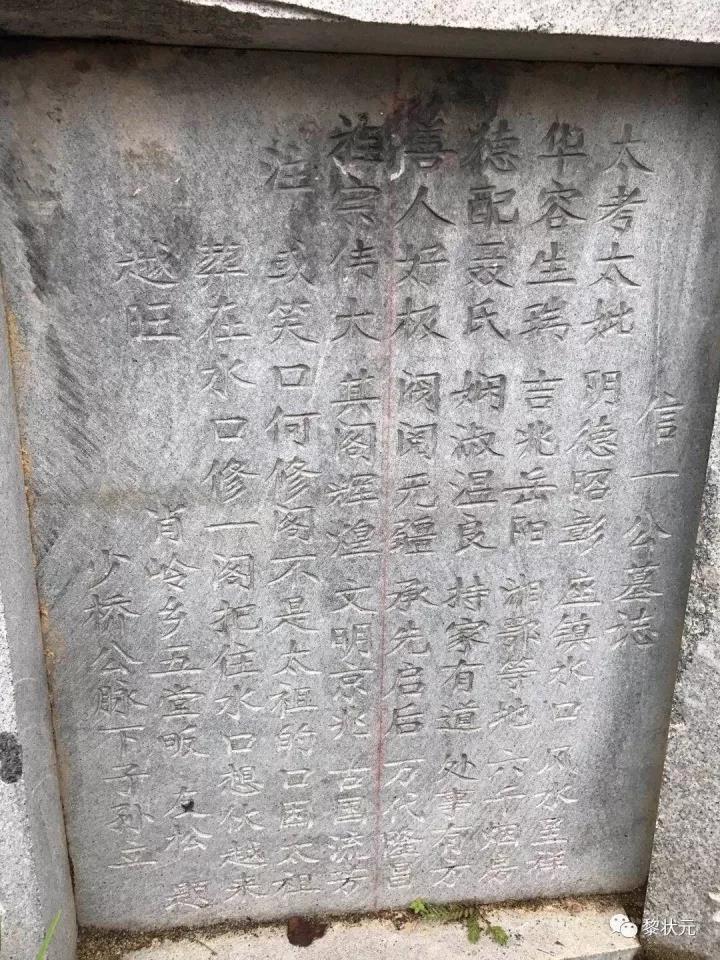 信一公墓志
太考太妣 阴德昭彰 座镇水口 风水呈祥
华容生瑞 吉兆岳阳 湘鄂等地 六千烟房
德配聂氏 娴淑温良 持家有道 处事有方
善人好 阀阅无疆 承先启后 万代隆昌
祖宗伟大 其阁辉煌 文明京兆 古国流芳
注 或笑口何修阁不是太祖的口因太祖
葬在水口修一阁把住水口想伙越来
越旺
肖岭乡五堂畈 友松 题
少桥公脉下子孙立
黎状元